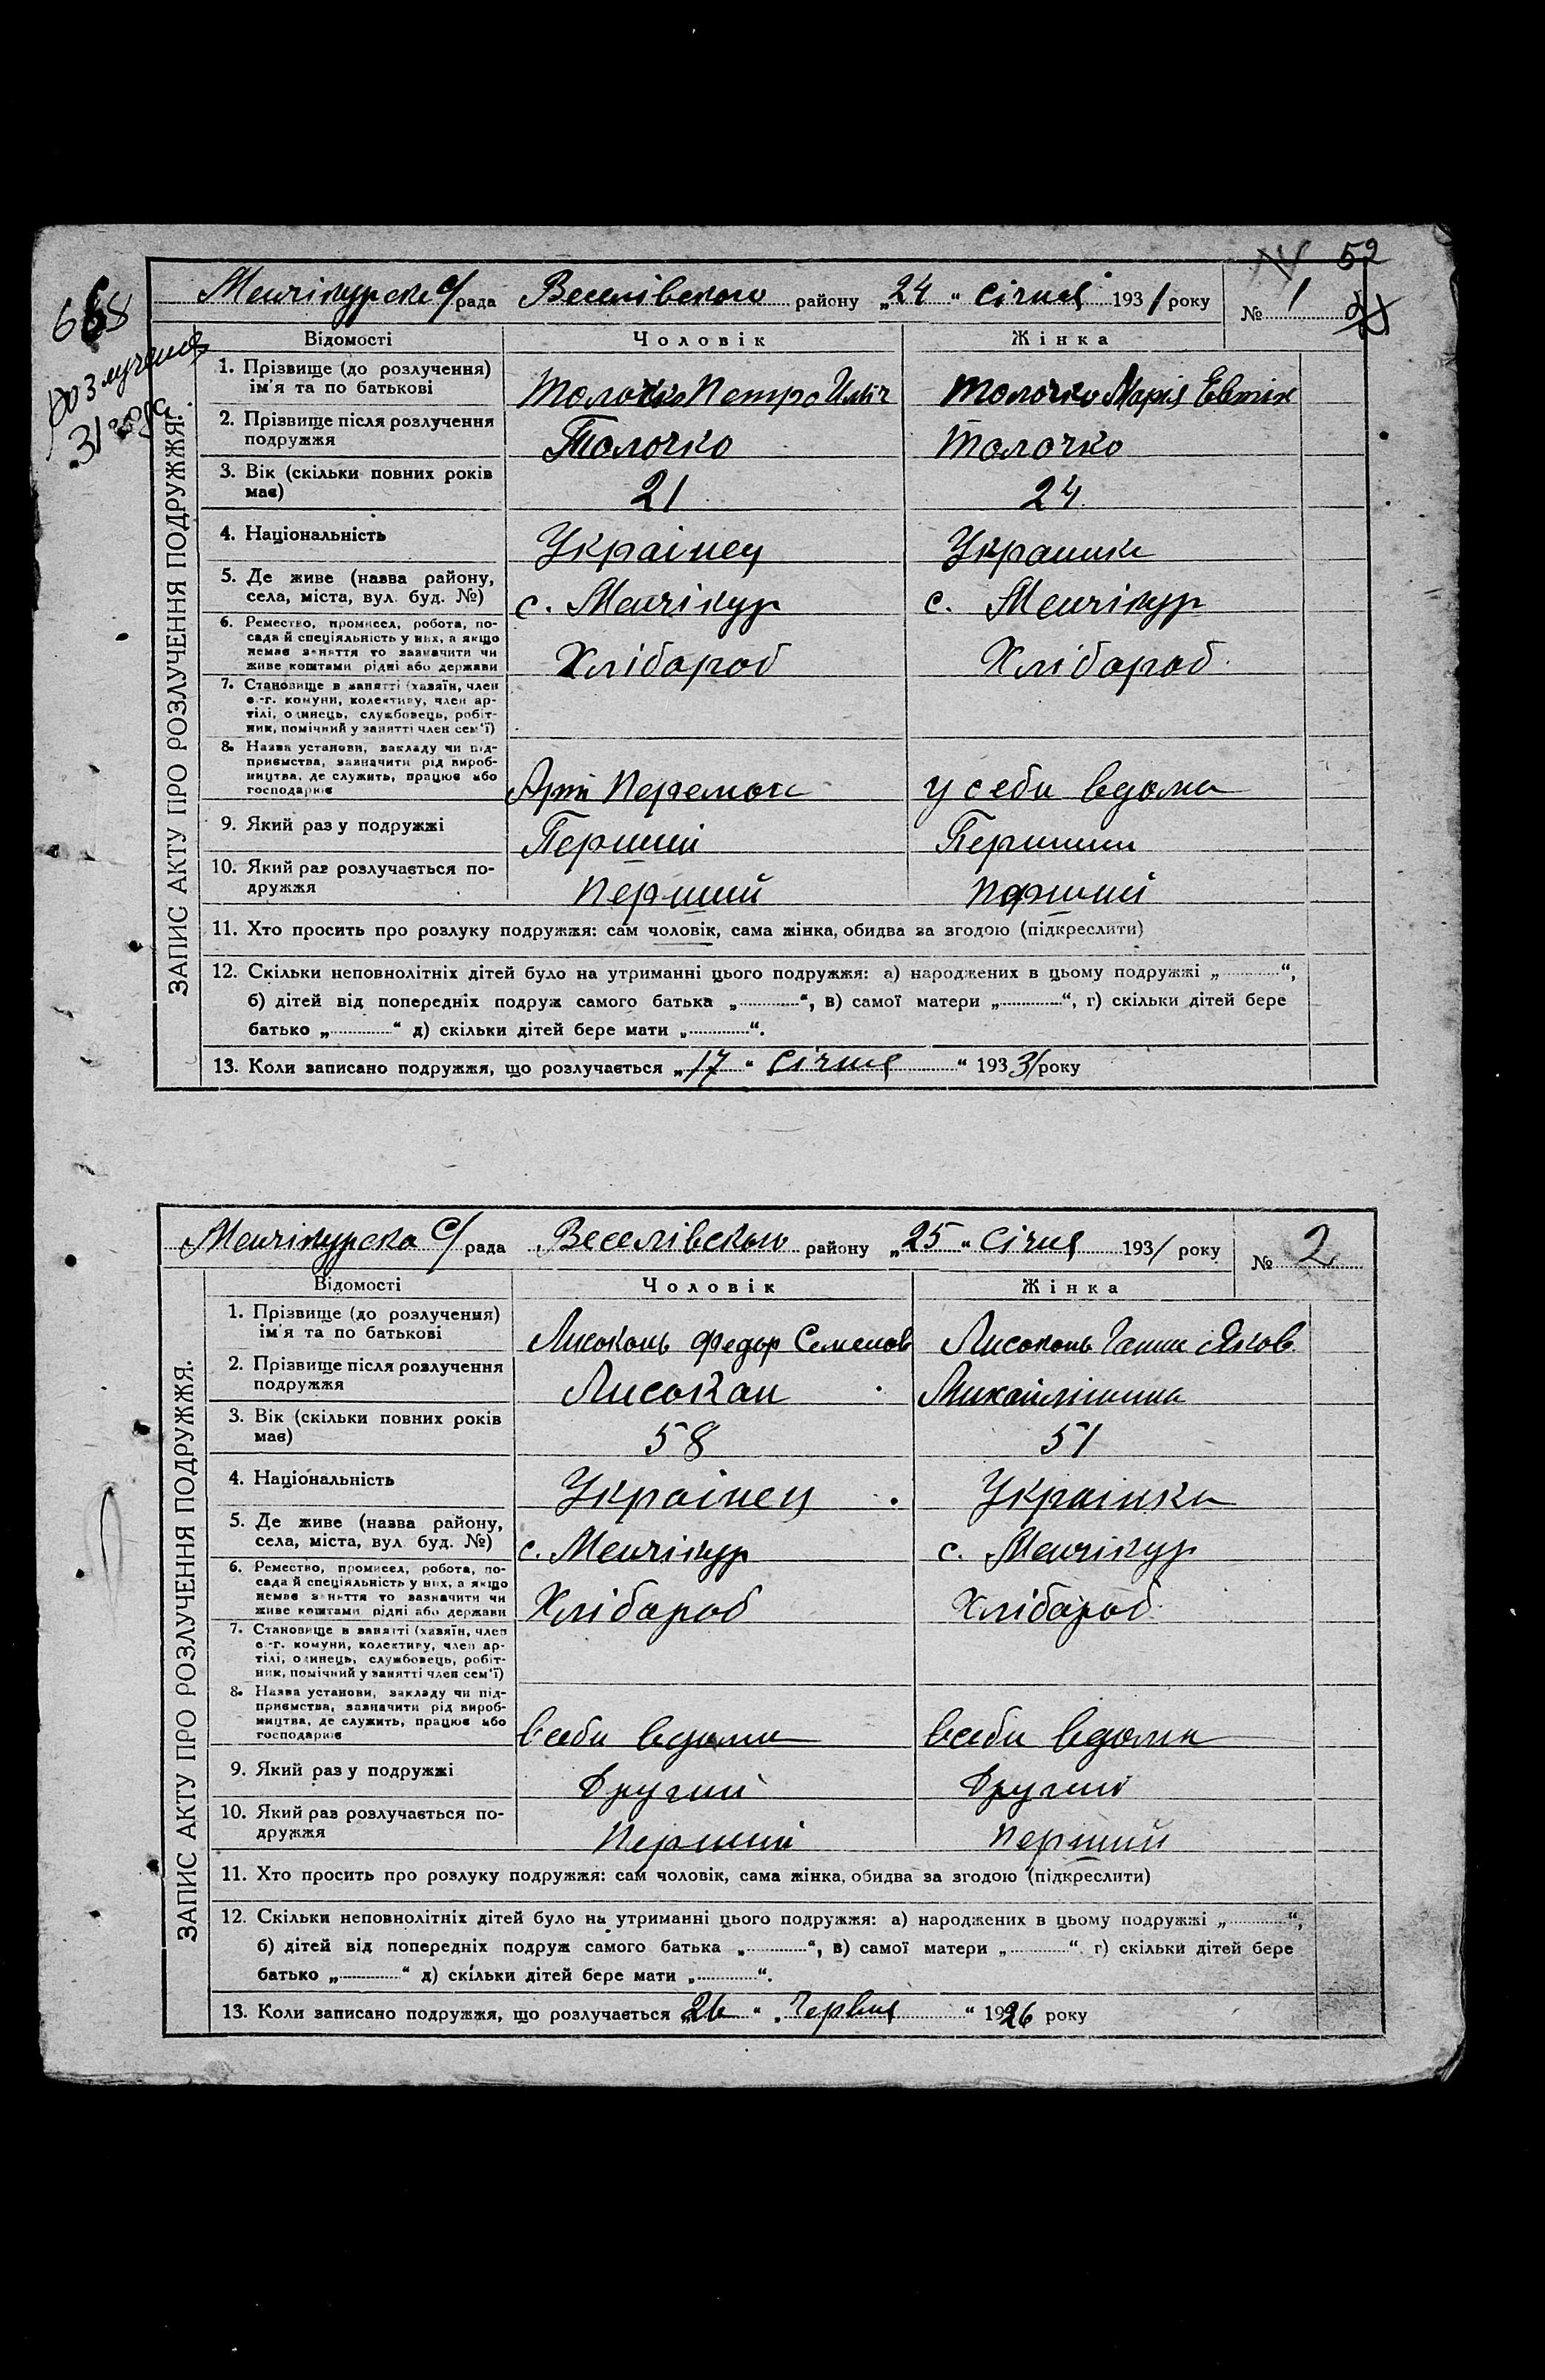 52
668
розлучення
31 года
Менчікурска с/рада Веселівського району „24“ січня 1931 року № 1
ЗАПИС АКТУ ПРО РОЗЛУЧЕННЯ ПОДРУЖЖЯ.
Відомості Чоловік Жінка
1. Прізвище (до розлучення)
ім'я та по батькові Толочко Петро Ілліч Толочко Марія Евтіх
2. Прізвище після розлучення
подружжя Толочко Толочко
3. Вік (скільки повних років
має) 21 24
4. Національність Українец Украинка
5. Де живе (назва району,
села, міста, вул. буд. №) с. Менчікур с. Менчікур
6. Ремество, промисел, робота, по-
сада й спеціяльність у них, а якщо
немає заняття то зазначити чи
живе коштами рідні або держави Хлібароб Хлібароб
7. Становище в занятті (хазяїн, член
с.-г. комуни, колективу, член ар-
тілі, одинець, службовець, робіт-
ник, помічний у занятті член сем'ї)
8. Назва установи, закладу чи під-
приємства, зазначити рід вироб-
ництва, де служить, працює або
господарює Арт Перемога у себи вдома
9. Який раз у подружжі Перший Перший
10. Який раз розлучається по-
дружжя Перший Перший
11. Хто просить про розлуку подружжя: сам чоловік, сама жінка, обидва за згодою (підкреслити)
12. Скільки неповнолітніх дітей було на утриманні цього подружжя: а) народжених в цьому подружжі „ “,
б) дітей від попередніх подруж самого батька „ “, в) самої матери „ “, г) скільки дітей бере
батько „ “ д) скільки дітей бере мати „ “.
13. Коли записано подружжя, що розлучається „17“ Січня “ 19331 року
Менчікурска с/рада Веселівського району „25“ Січня 1931 року № 2
ЗАПИС АКТУ ПРО РОЗЛУЧЕННЯ ПОДРУЖЖЯ.
Відомості Чоловік Жінка
1. Прізвище (до розлучення)
ім'я та по батькові Лисоконь Федор Семенов Лисоконь Ганна Яков
2. Прізвище після розлучення
подружжя Лисокан Михайлішина
3. Вік (скільки повних років
має) 58 51
4. Національність Українец Українка
5. Де живе (назва району,
села, міста, вул. буд. №) с. Менчікур с. Менчікур
6. Ремество, промисел, робота, по-
сада й спеціяльність у них, а якщо
немає заняття то зазначити чи
живе коштами рідні або держави Хлібароб Хлібароб
7. Становище в занятті (хазяїн, член
с.-г. комуни, колективу, член ар-
тілі, одинець, службовець, робіт-
ник, помічний у занятті член сем'ї)
8. Назва установи, закладу чи під-
приємства, зазначити рід вироб-
ництва, де служить, працює або
господарює всеби вдома всеби вдома
9. Який раз у подружжі Другий Другий
10. Який раз розлучається по-
дружжя Перший Перший
11. Хто просить про розлуку подружжя: сам чоловік, сама жінка, обидва за згодою (підкреслити)
12. Скільки неповнолітніх дітей було на утриманні цього подружжя: а) народжених в цьому подружжі „ “,
б) дітей від попередніх подруж самого батька „ “, в) самої матери „ “ г) скільки дітей бере
батько „ “ д) скільки дітей бере мати „ “.
13. Коли записано подружжя, що розлучається „26“ Червня “ 1926 року